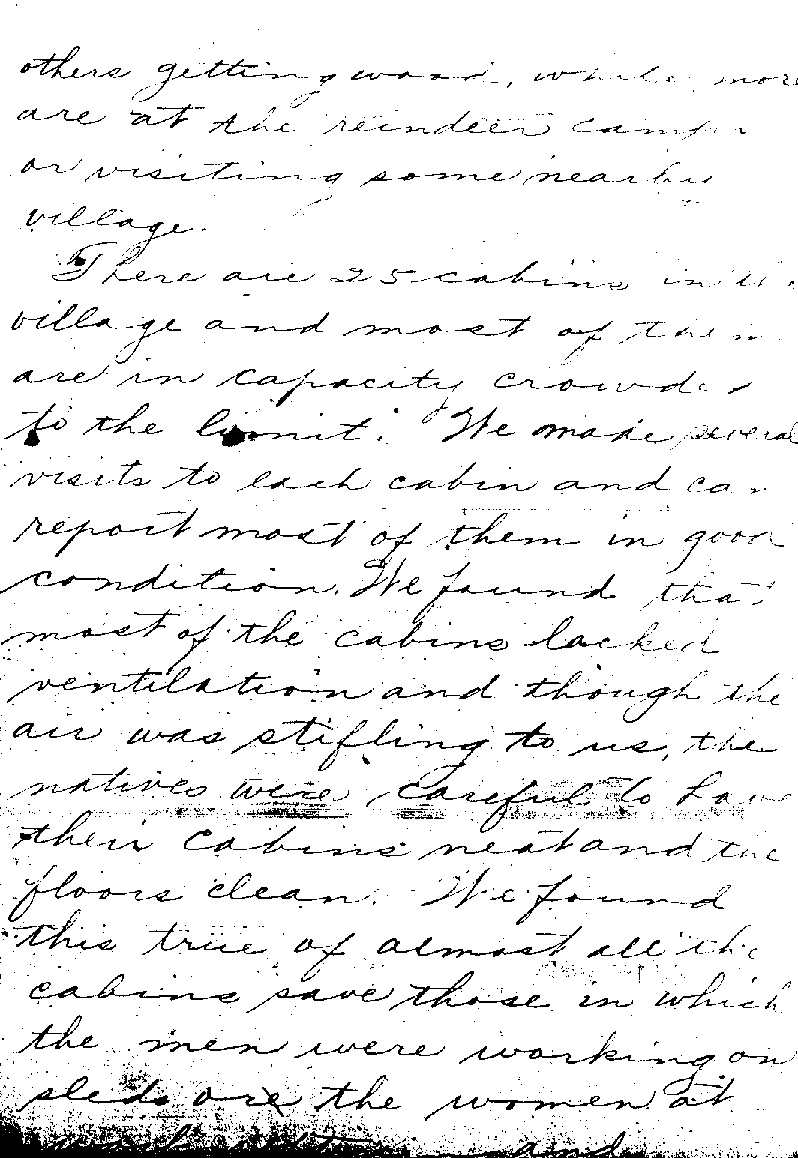 others getting wood, while more
are at the reindeer camps
or visiting some nearby
village.
There are 25 cabins in the
village and most of them
are in capacity crowded
to the limit. We made several
visits to each cabin and can
report most of them in good
condition. We found that
most of the cabins lacked
ventilation and though the
air was stifling to us, the
natives were careful to have
their cabins neat and the
floors clean. We found
this true of almost all the
cabins save those in which
the men were working on
sleds or the women at
and